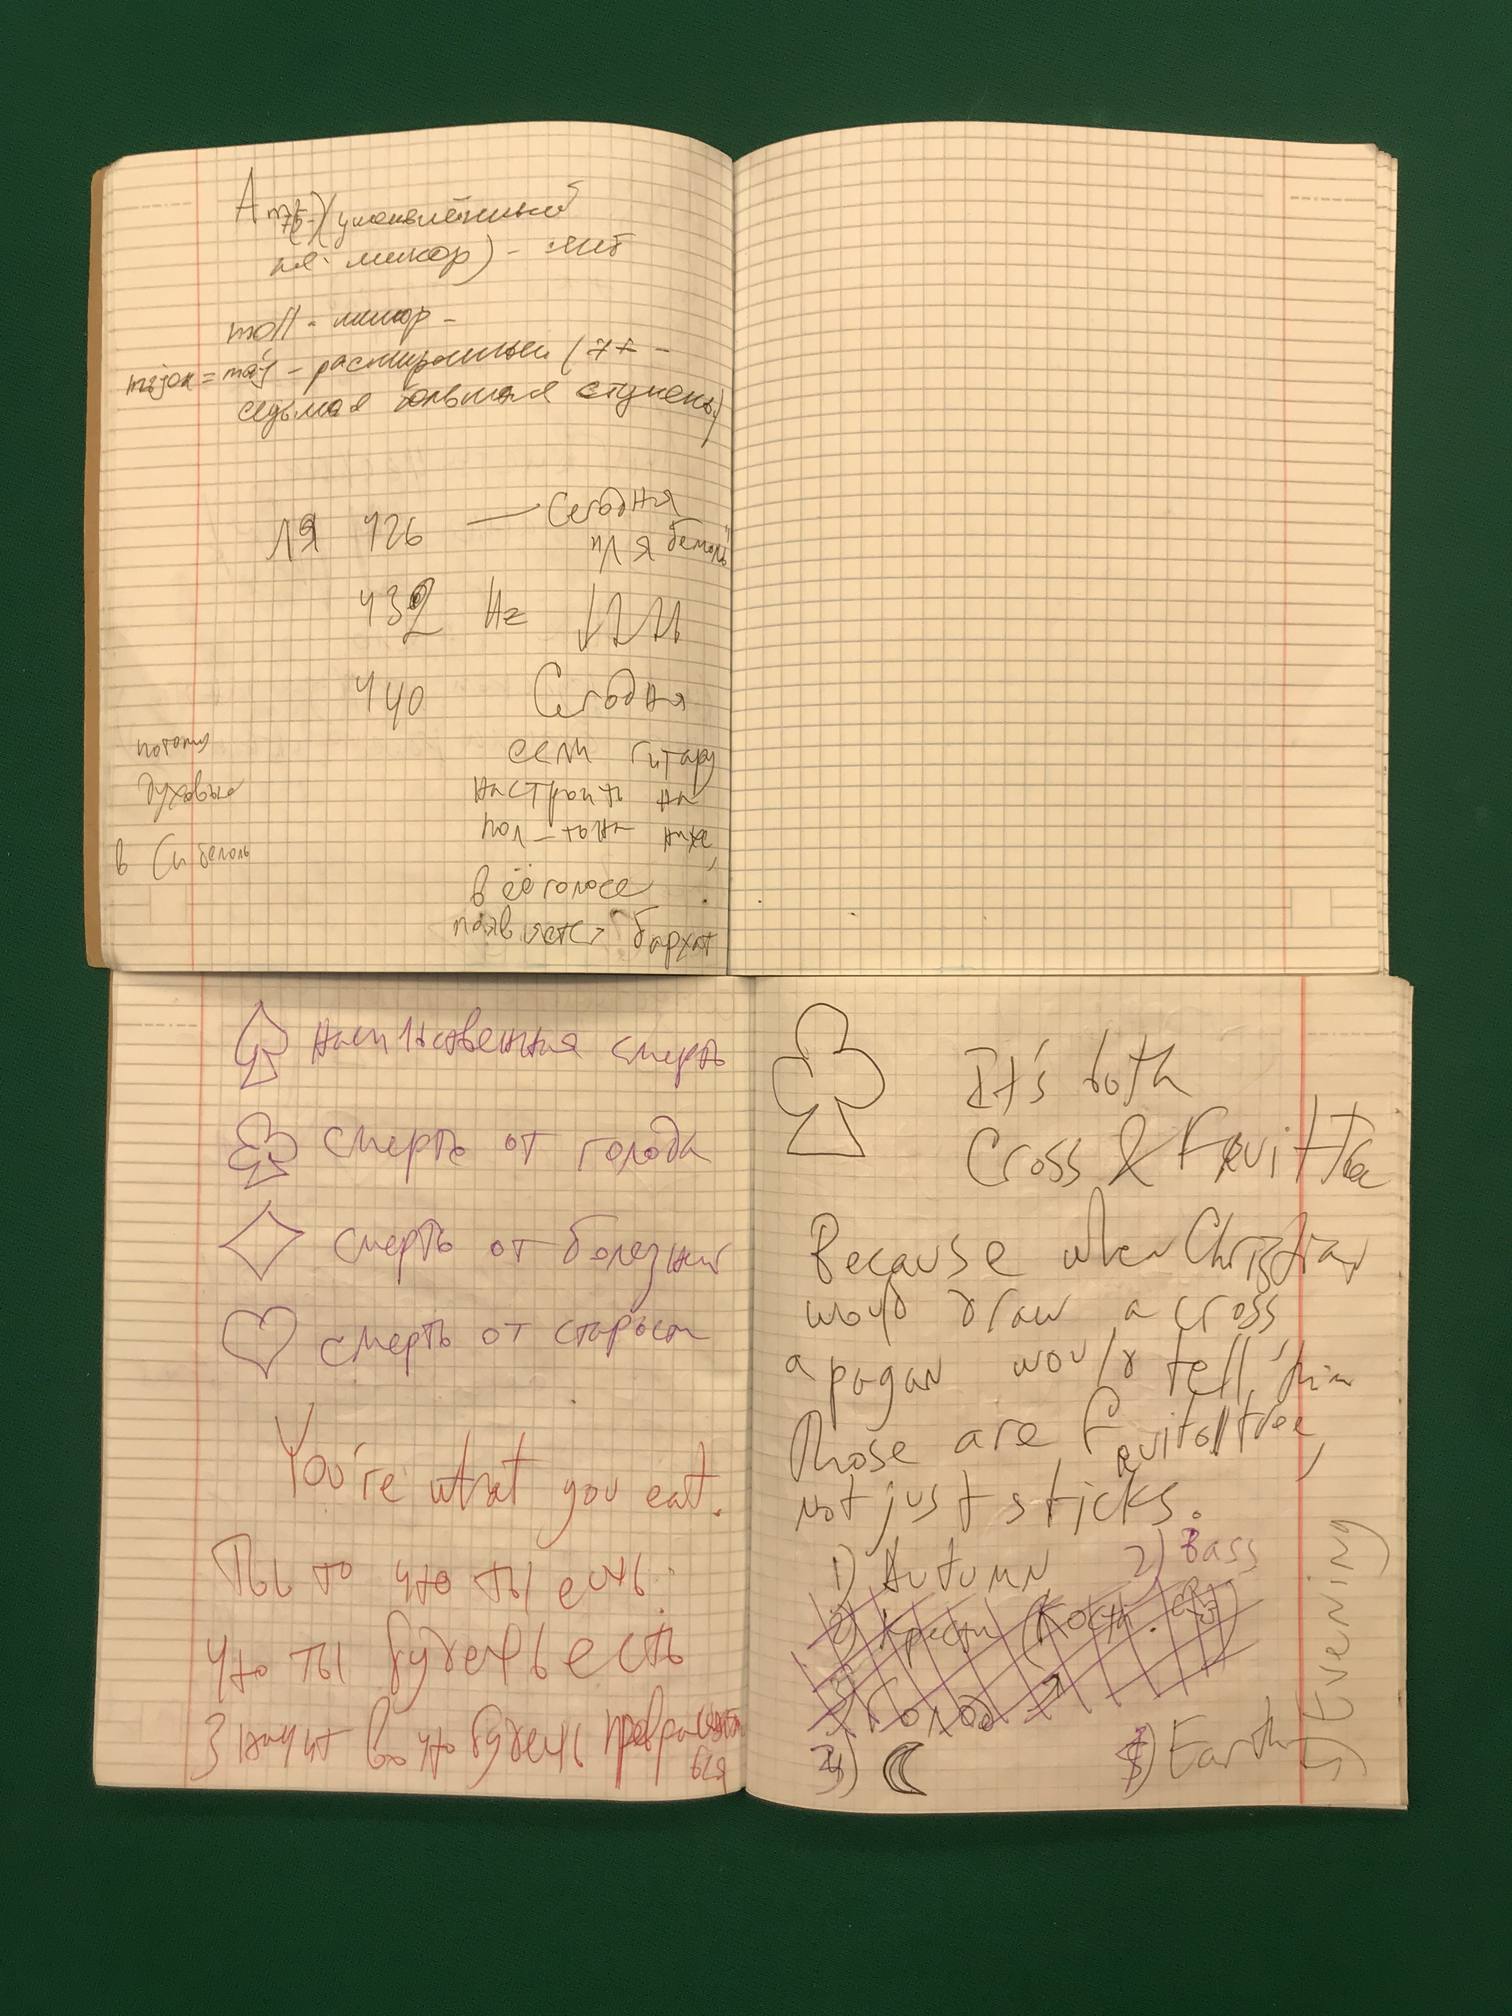 (уменьшённый
минор) -
moll - минор -
major = maj - расширенный (7+ -
седьмая большая ступень)
ЛЯ 426 — Сегодня
"Ля бемоль"
432 Hz
440 Сегодня
если гитару
настроить на
пол-тона ниже,
в её голосе
появляется бархат
потому
духовые
в Си бемоль
насильственная смерть
смерть от голода
смерть от болезни
смерть от старости
You're what you eat.
Ты то что ты есть.
Что ты будешь есть
Значит во что будешь превращаться
It's both
Cross & Fruit Tree
Because when Christian
would draw a cross,
a pagan would tell him
Those are fruit of tree,
not just sticks.
1) Autumn
2) Bass
2) Крести (Кости)
3) Голод
3)
4) Earth
5) Evening